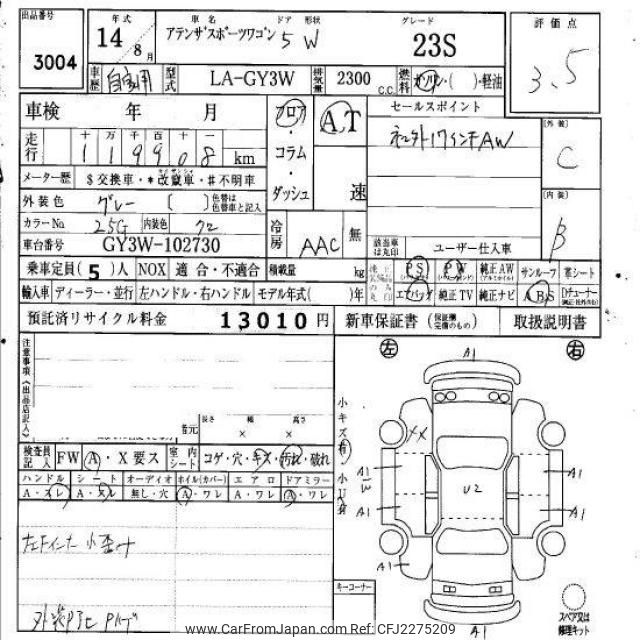 出品番号 年式 車名 ドア 形状 グレード 評価点
3004 14 8月 アテンザスポーツワゴン 5 W 23S 3.5
車歴 自家用 型式 LA-GY3W 排気量 2300 C.C. 燃料 ガソリン・( )・軽油
車検 年 月 フロア AT セールスポイント
走行 十万千百十一 119908 km ・コラム・ダッシュ 速 17インチAW [外装] C
メーター歴 $交換車・*改竄車・#不明車
外装色 グレー [ ] 色替は色替車と記入 [内装] B
カラーNo 25G 内装色 クロ 冷房 AAC 無
車台番号 GY3W-102730 該当車は丸印 ユーザー仕入車
乗車定員(5)人 NOX 適合・不適合 積載量 kg PS PW 純正AW サンルーフ 革シート
輸入車 ディーラー・並行 左ハンドル・右ハンドル モデル年式( )年 エアバッグ 純正TV 純正ナビ ABS
預託済リサイクル料金 13010円 新車保証書 取扱説明書
注意事項(出品店記入) 左 A1 右
長さ 幅 高さ
者元 × × ×
検査員記入 FW A・X要ス 室内シート コゲ・穴・キズ・汚れ・破れ
ハンドル シート オーディオ ホイル(カバー) エアロ ドアミラー
A・スレ A・スレ 無し・穴 A・ワレ A・ワレ A・ワレ
小キズ有 小U有
XX
A1 W U2 A1
A1 A1
A1
キーコーナー
A1
スペア又は修理キット
www.CarFromJapan.com Ref: CFJ2275209